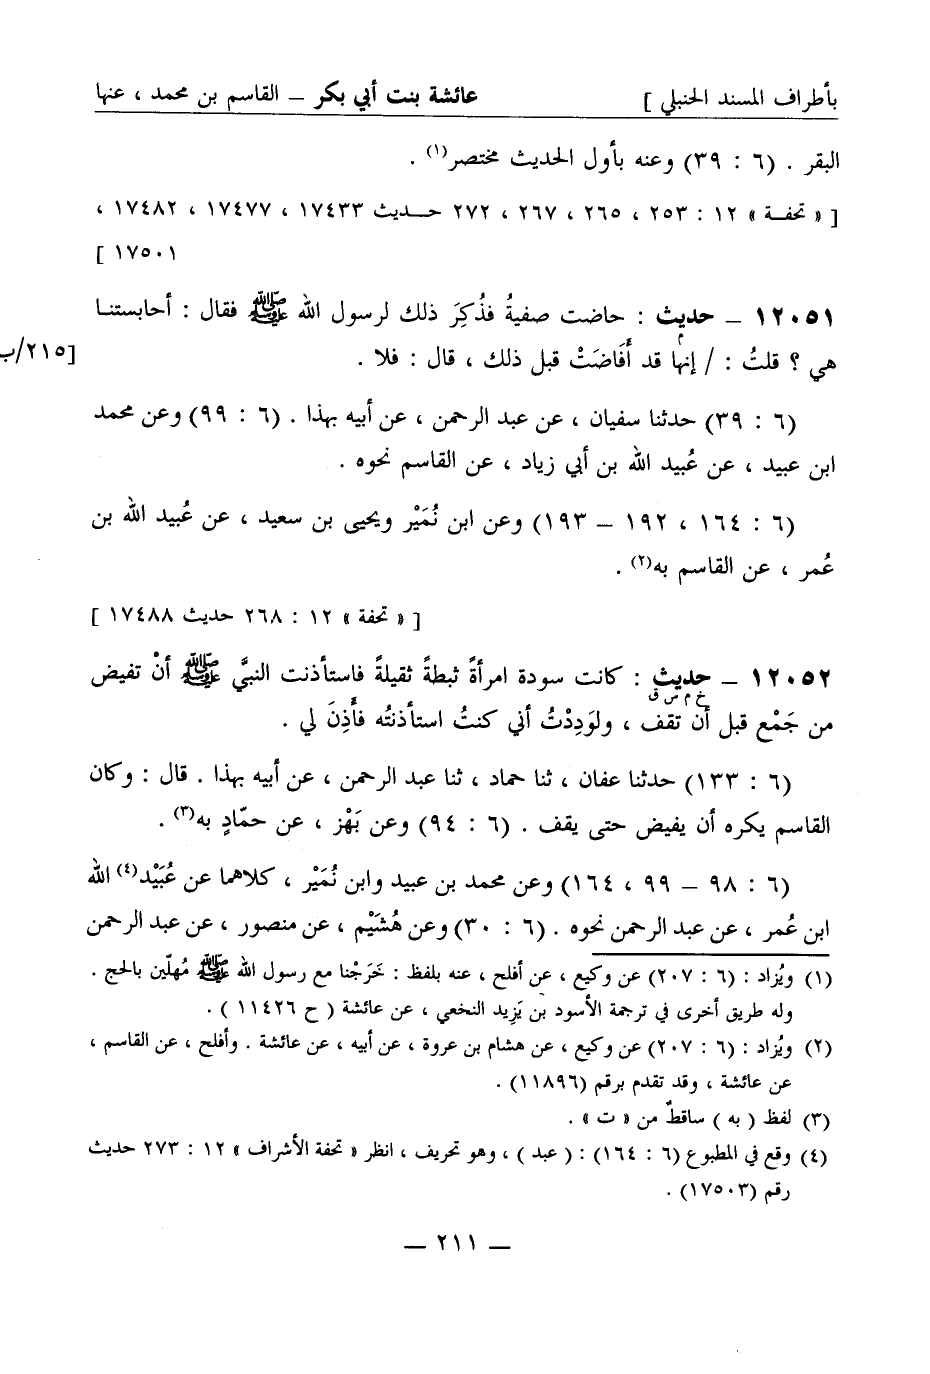 بأطراف المسند الحنبلي ] عائشة بنت أبي بكر – القاسم بن محمد ، عنها
البقر . (٦ : ٣٩) وعنه بأول الحديث مختصر(١) .
[ « تحفــة » ١٢ : ٢٥٣ ، ٢٦٥ ، ٢٦٧ ، ٢٧٢ حــديث ١٧٤٣٣ ، ١٧٤٧٧ ، ١٧٤٨٢ ،
١٧٥٠١ ]
١٢٠٥١ – حديث : حاضت صفيةُ فذُكِرَ ذلك لرسول الله ﷺ فقال : أحابستنـا
م
هي ؟ قلتُ : / إنها قد أَفَاضَتْ قبل ذلك ، قال : فلا .
[٢١٥/ب
(٦ : ٣٩) حدثنا سفيان ، عن عبد الرحمن ، عن أبيه بهذا . (٦ : ٩٩) وعن محمد
ابن عبيد ، عن عُبيد الله بن أبي زياد ، عن القاسم نحوه .
(٦ : ١٦٤ ، ١٩٢ – ١٩٣) وعن ابن نُمَيْر ويحيى بن سعيد ، عن عُبيد الله بن
عُمر ، عن القاسم به(٢) .
[ « تحفة » ١٢ : ٢٦٨ حديث ١٧٤٨٨ ]
١٢٠٥٢ – حديث : كانت سودة امرأةً ثبطةً ثقيلةً فاستأذنت النبيَّ ﷺ أنْ تفيض
خ م س ق
من جَمْع قبل أن تقف ، ولَودِدْتُ أني كنتُ استأذنتُه فأَذِنَ لي .
(٦ : ١٣٣) حدثنا عفان ، ثنا حماد ، ثنا عبد الرحمن ، عن أبيه بهذا . قال : وكان
القاسم يكره أن يفيض حتى يقف . (٦ : ٩٤) وعن بَهْز ، عن حمّادٍ به(٣) .
(٦ : ٩٨ – ٩٩ ، ١٦٤) وعن محمد بن عبيد وابن نُمَيْر ، كلاهما عن عُبَيْد(٤) الله
ابن عُمر ، عن عبد الرحمن نحوه . (٦ : ٣٠) وعن هُشَيْم ، عن منصور ، عن عبد الرحمن
(١) ويُزاد : (٦ : ٢٠٧) عن وكيع ، عن أفلح ، عنه بلفظ : خَرَجْنا مع رسول الله ﷺ مُهلّين بالحج .
وله طريق أخرى في ترجمة الأسود بن يَزِيد النخعي ، عن عائشة ( ح ١١٤٢٦ ) .
(٢) ويُزاد : (٦ : ٢٠٧) عن وكيع ، عن هشام بن عروة ، عن أبيه ، عن عائشة . وأفلح ، عن القاسم ،
عن عائشة ، وقد تقدم برقم (١١٨٩٦) .
(٣) لفظ ( به ) ساقطٌ من « ت » .
(٤) وقع في المطبوع (٦ : ١٦٤) : ( عبد ) ، وهو تحريف ، انظر « تحفة الأشراف » ١٢ : ٢٧٣ حديث
رقم (١٧٥٠٣) .
– ٢١١ –